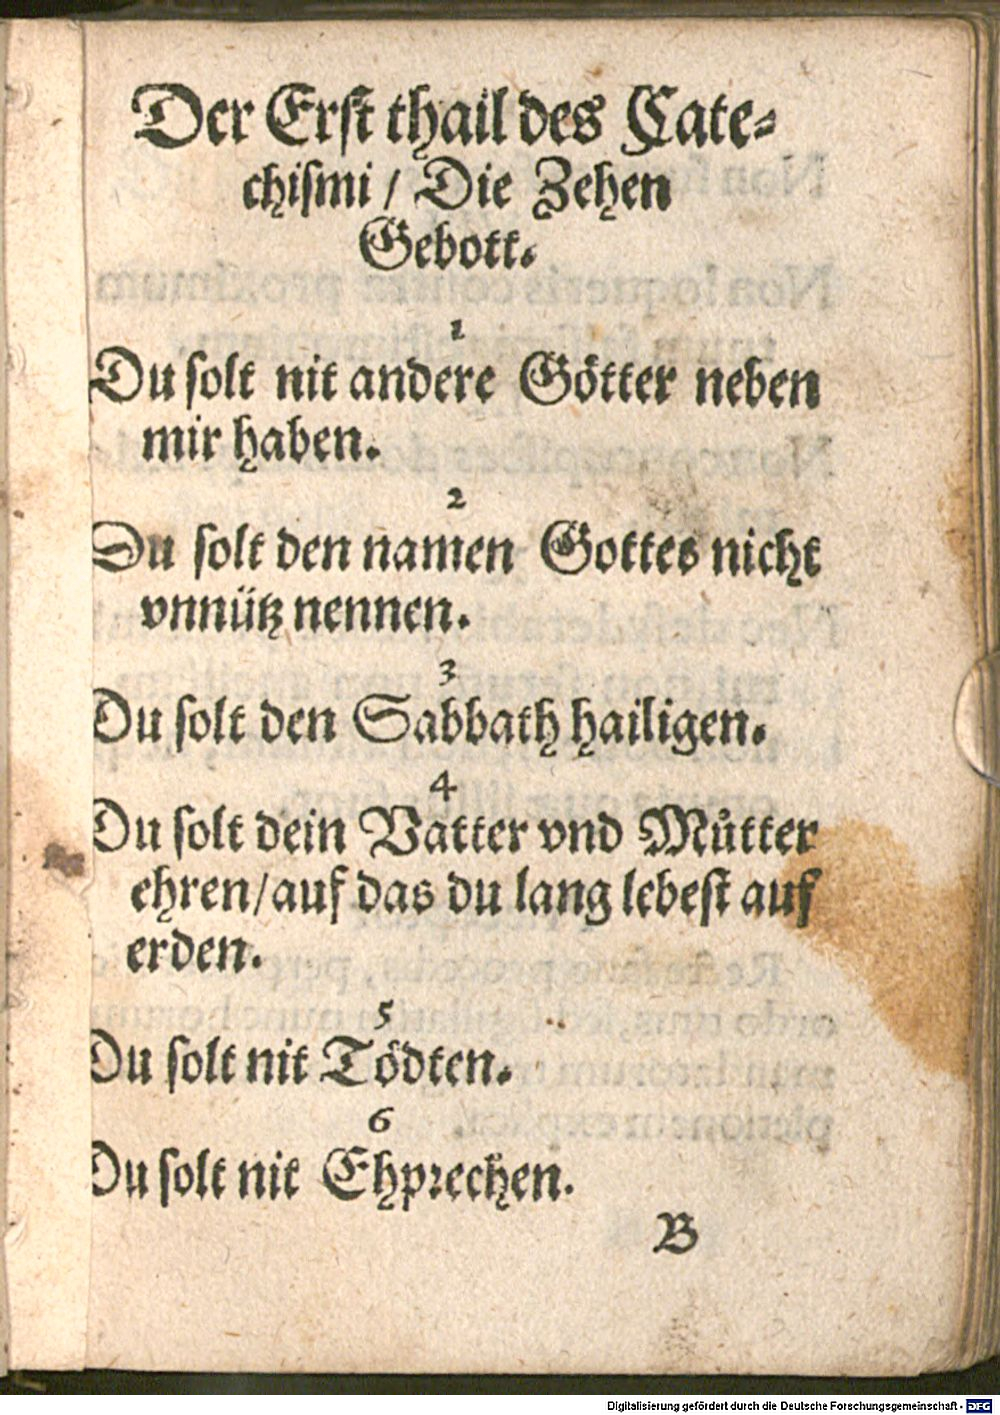 Der Erſt thail des Cate⸗
chiſmi / Die Zehen
Gebott.
1
Du ſolt nit andere Götter neben
mir haben.
2
Du ſolt den namen Gottes nicht
vnnütz nennen.
3
Du ſolt den Sabbath hailigen.
4
Du ſolt dein Vatter vnd Můtter
ehren/auf das du lang lebeſt auf
erden.
5
Du ſolt nit Tödten.
6
Du ſolt nit Ehprechen.
B
Digitalisierung gefördert durch die Deutsche Forschungsgemeinschaft - DFG